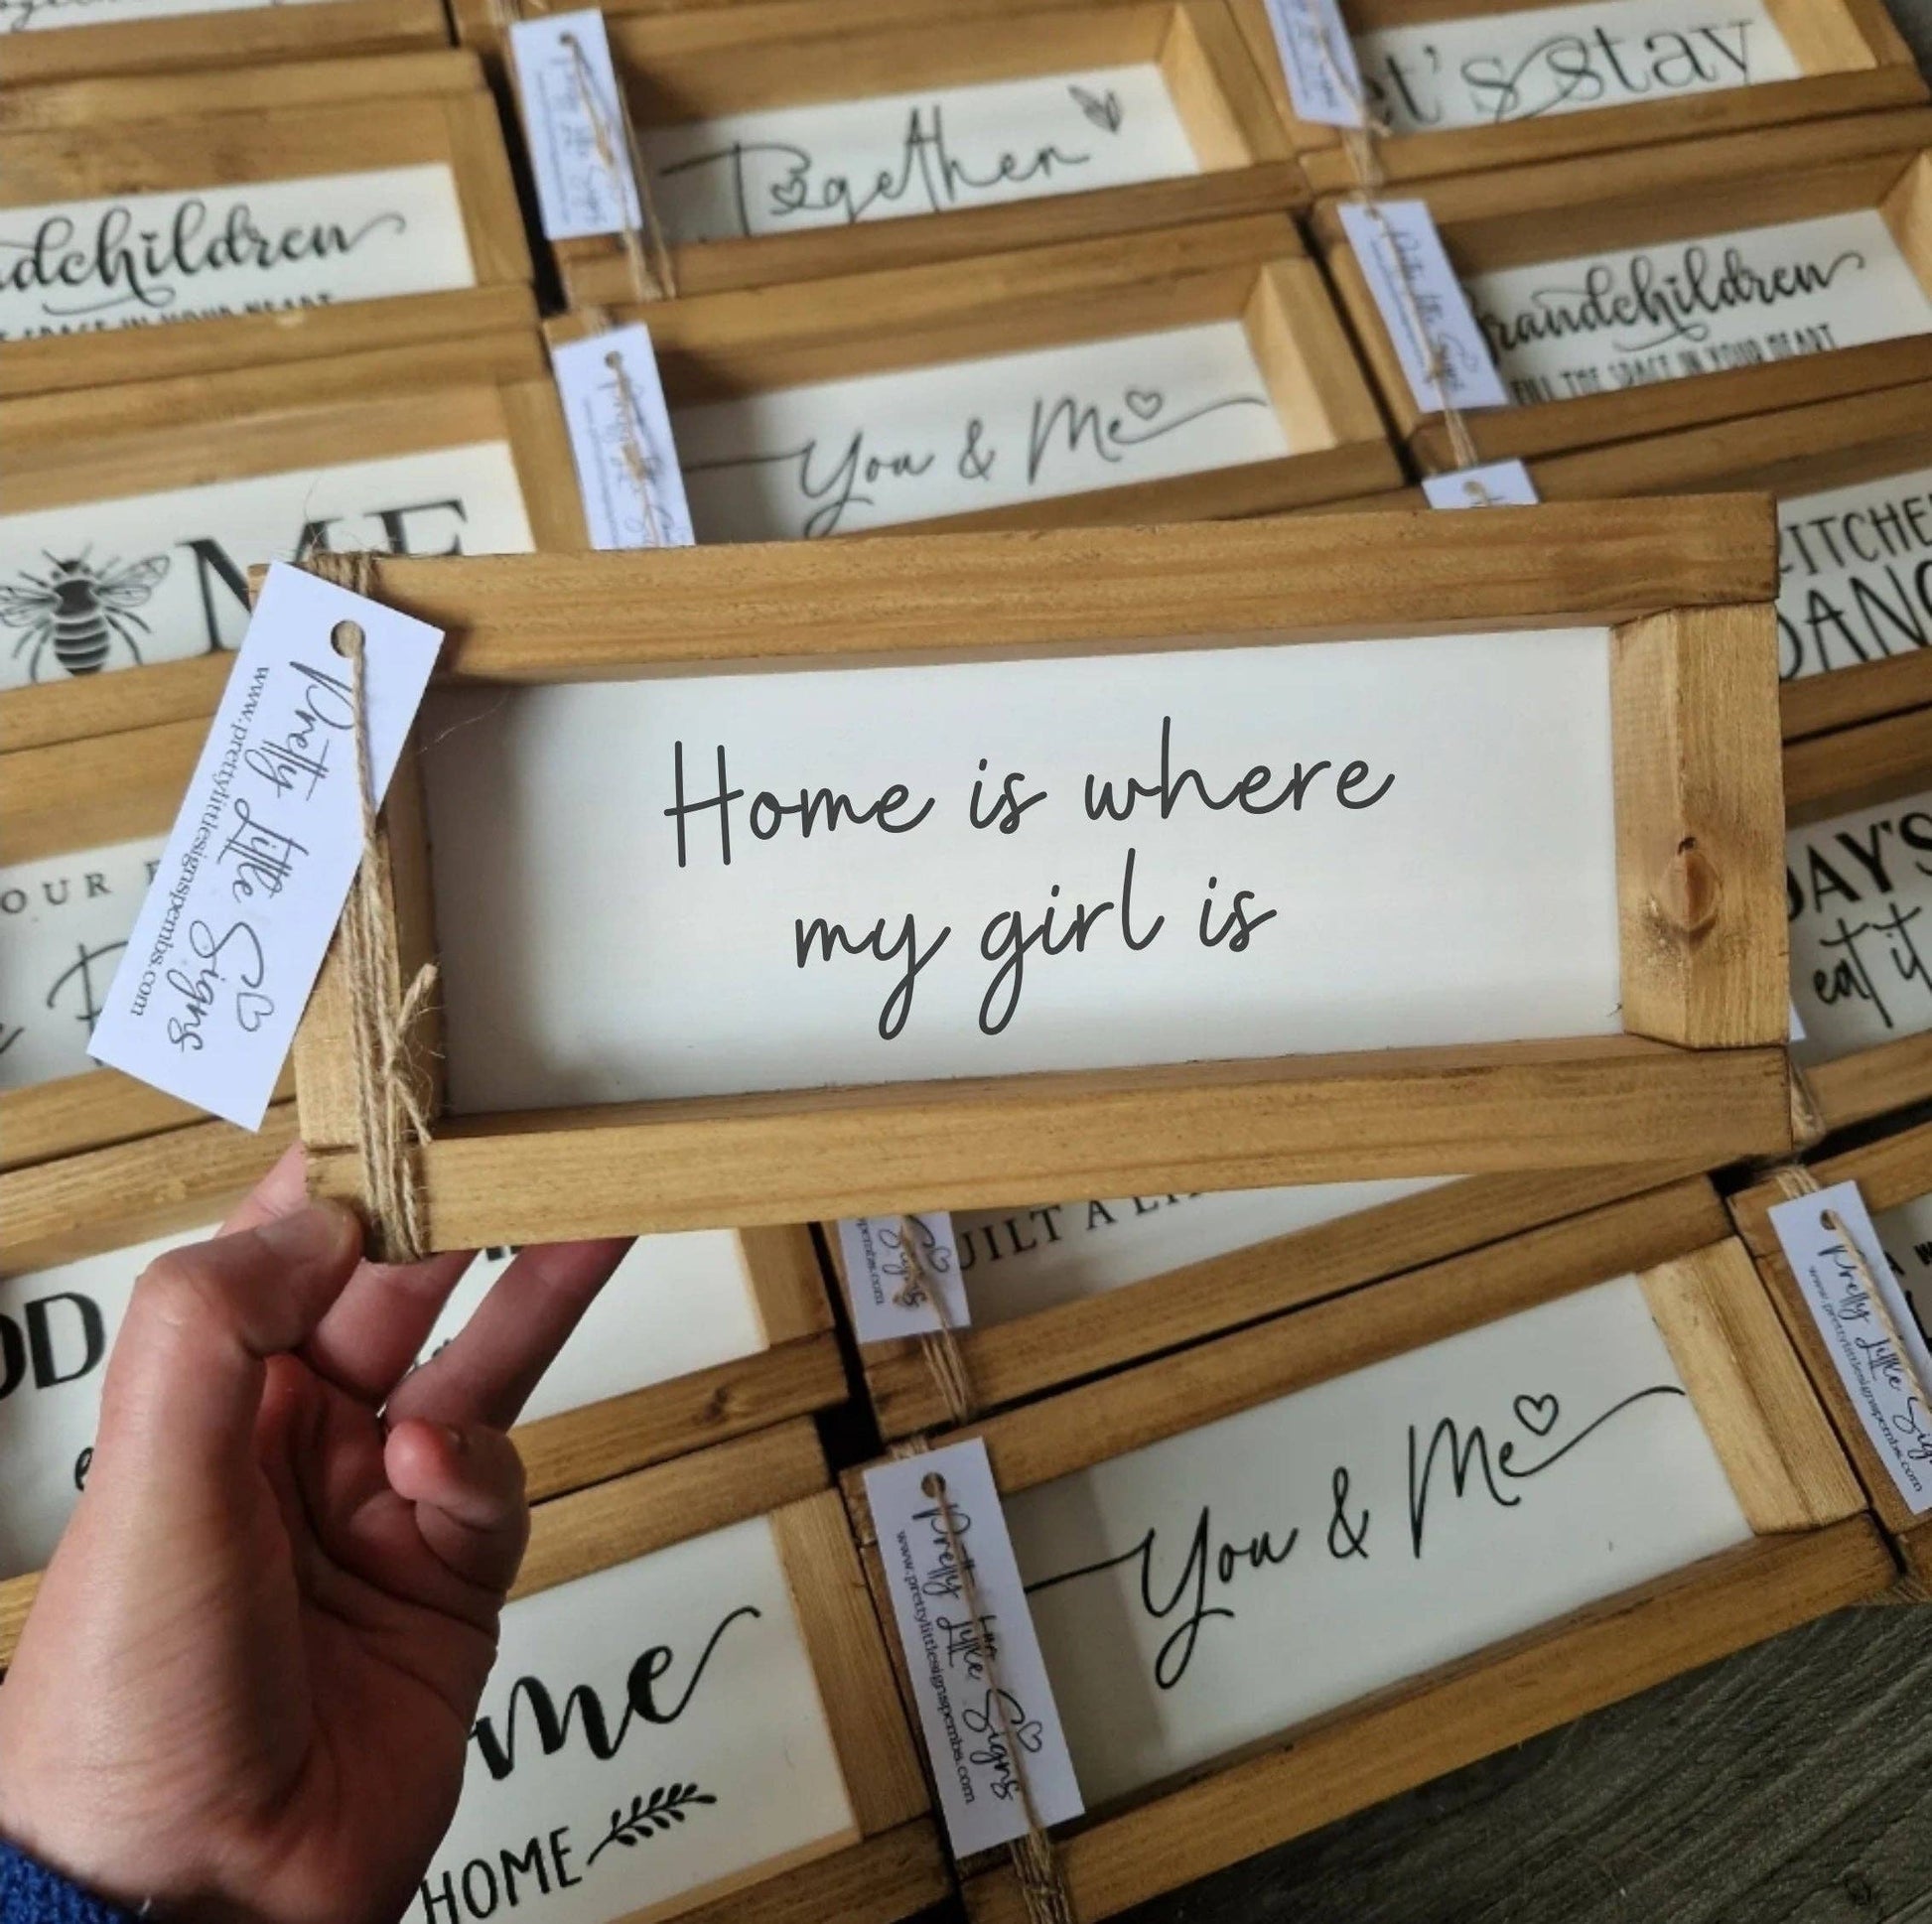 Together
t's stay
dchildren
randchildren
FILL THE SPACE IN YOUR HEART
You & Me
ME
ITCHE
DANC
Pretty Little Signs
www.prettylittlesignspembs.com
Home is where
my girl is
OUR
DAY'S
eat it
UILT A LI
OD
You & Me
Pretty Little Signs
www.prettylittlesignspembs.com
Pretty Little Sig
www.prettylittlesignspembs.com
me
HOME